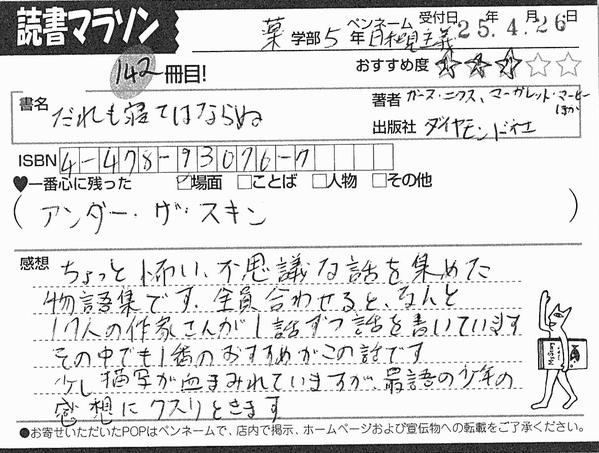 読書マラソン
薬 学部 5 年 ペンネーム 日和見主義 受付日 25年 4月 26日
142 冊目!
おすすめ度 ★★★☆☆
書名 だれも寝てはならぬ
著者 ガース・ニクス、マーガレット・マーヒー ほか
出版社 ダイヤモンド社
ISBN 4-478-93076-7
♥一番心に残った ☑場面 □ことば □人物 □その他
(アンダー・ザ・スキン)
感想 ちょっと怖い、不思議な話を集めた
物語集です。全員合わせると、なんと
17人の作家さんが1話ずつ話を書いています
その中でも1番のおすすめがこの話です
少し描写が血まみれていますが、最語の少年の
感想にクスリときます
●お寄せいただいたPOPはペンネームで、店内で掲示、ホームページおよび宣伝物への転載をご了承ください。